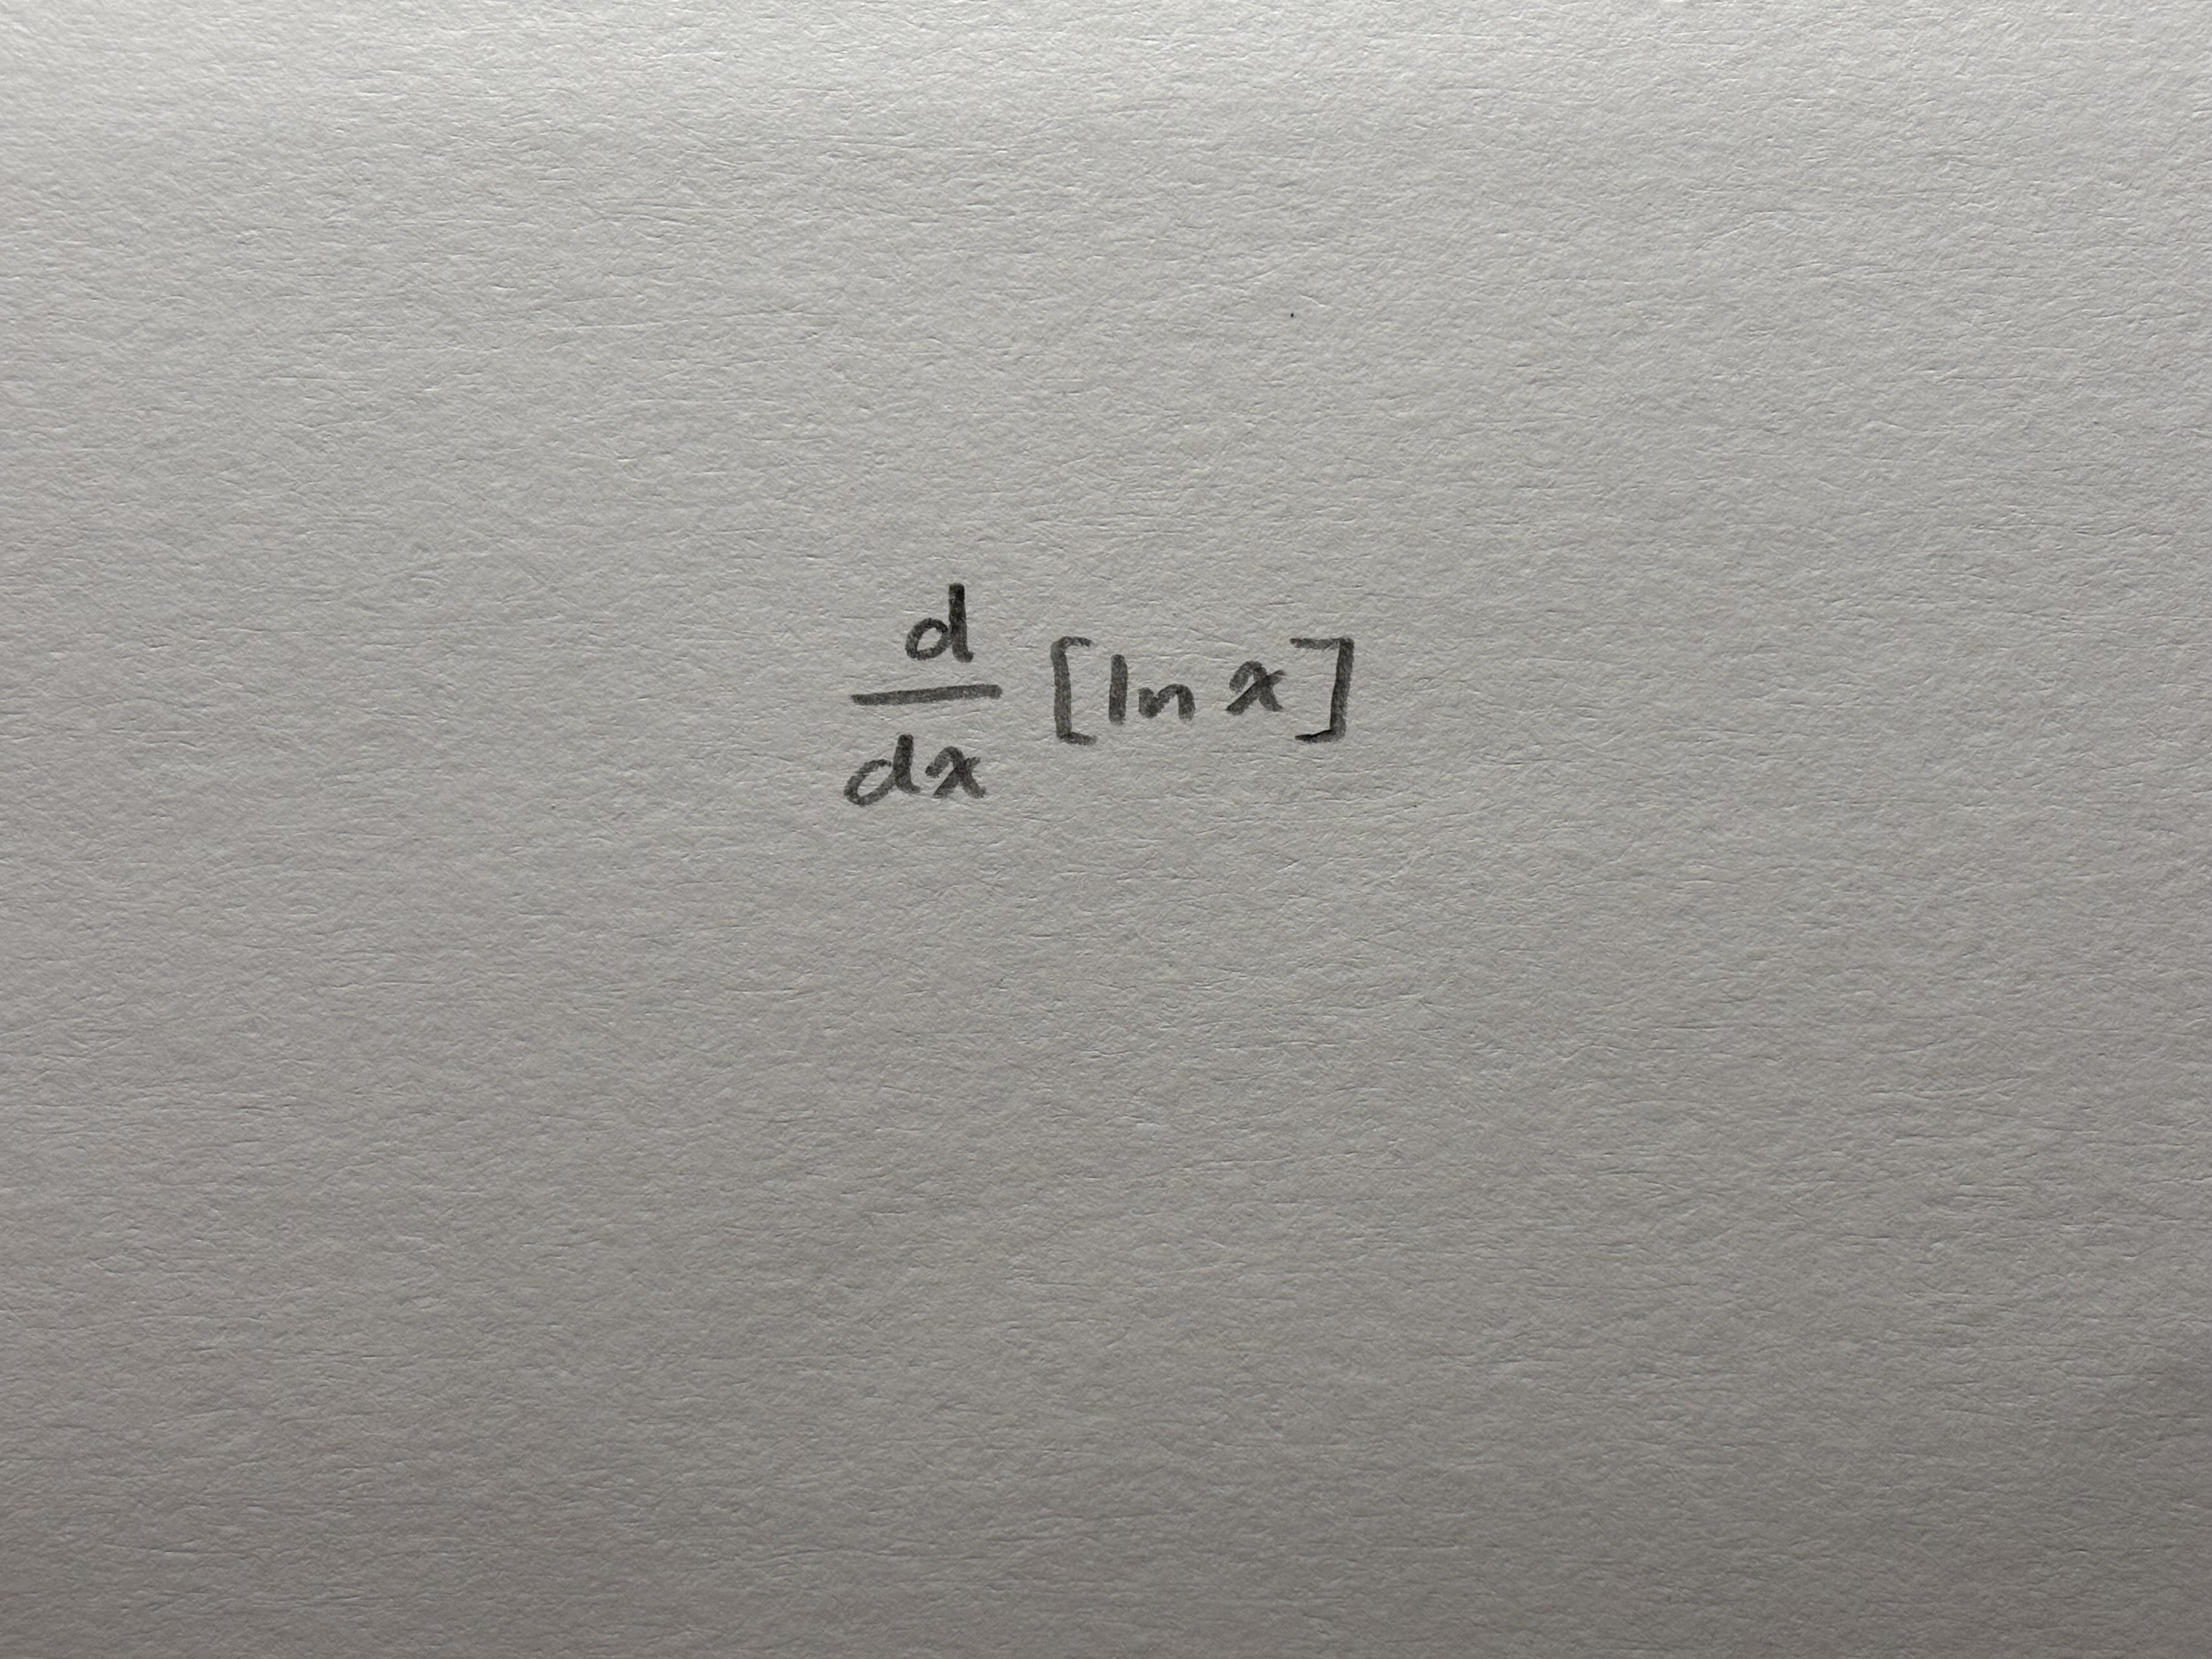 d/dx [ln x]